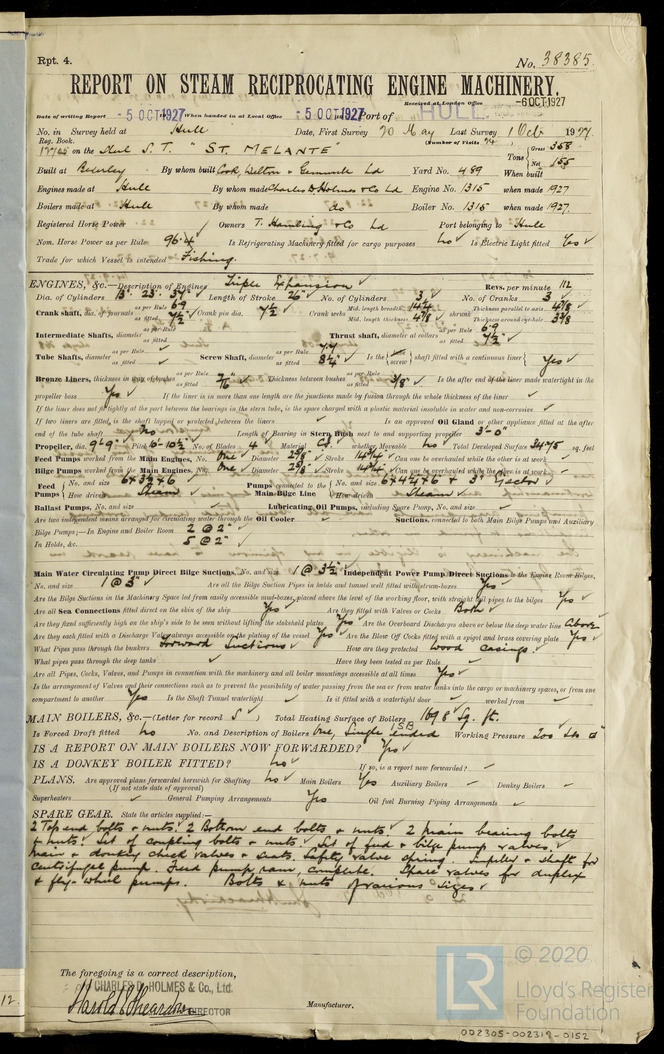 Rpt. 4.
No. 38385.
REPORT ON STEAM RECIPROCATING ENGINE MACHINERY.
Received at London Office -6 OCT 1927
Date of writing Report -5 OCT 1927 When handed in at Local Office -5 OCT 1927 Port of HULL.
No. in Survey held at Hull Date, First Survey 20 May Last Survey 1 Oct 1927
Reg. Book. (Number of Visits 74)
on the Hull S.T. "ST. MELANTE" Tons Gross 358 Net 155
Built at Beverley By whom built Cook, Welton & Gemmell Ld Yard No. 489 When built
Engines made at Hull By whom made Charles D. Holmes & Co Ld Engine No. 1315 when made 1927
Boilers made at Hull By whom made do Boiler No. 1315 when made 1927
Registered Horse Power Owners T. Hamling & Co Ld Port belonging to Hull
Nom. Horse Power as per Rule 96.4 Is Refrigerating Machinery fitted for cargo purposes No Is Electric Light fitted Yes
Trade for which Vessel is intended Fishing.
ENGINES, &c.—Description of Engines Triple Expansion Revs. per minute 112
Dia. of Cylinders 13" 23" 37" Length of Stroke 26" No. of Cylinders 3 No. of Cranks 3
Crank shaft, dia. of journals as per Rule 6.9 as fitted 7½ Crank pin dia. 7½ Crank webs Mid. length breadth 14¼ Mid. length thickness 4⅞ shrunk Thickness parallel to axis 4⅞ Thickness around eye-hole 3⅜
Intermediate Shafts, diameter as per Rule as fitted Thrust shaft, diameter at collars as per Rule 6.9 as fitted 7½
Tube Shafts, diameter as per Rule as fitted Screw Shaft, diameter as per Rule 7.7 as fitted 8¼ Is the screw shaft fitted with a continuous liner Yes
Bronze Liners, thickness in way of bushes as per Rule as fitted Thickness between bushes as per Rule as fitted 3/8" Is the after end of the liner made watertight in the
propeller boss Yes If the liner is in more than one length are the junctions made by fusion through the whole thickness of the liner
If the liner does not fit tightly at the part between the bearings in the stern tube, is the space charged with a plastic material insoluble in water and non-corrosive
If two liners are fitted, is the shaft lapped or protected between the liners Is an approved Oil Gland or other appliance fitted at the after
end of the tube shaft No Length of Bearing in Stern Bush next to and supporting propeller 3'-0"
Propeller, dia. 9'-9" Pitch 10'-10½ No. of Blades 4 Material C.I. whether Moveable No Total Developed Surface 34.75 sq. feet
Feed Pumps worked from the Main Engines, No. One Diameter 2⅞" Stroke 14¾" Can one be overhauled while the other is at work
Bilge Pumps worked from the Main Engines, No. One Diameter 2⅞" Stroke 14¾" Can one be overhauled while the other is at work
Feed Pumps No. and size 6 x 3½ x 6 How driven Steam Pumps connected to the Main Bilge Line No. and size 6 x 4¼ x 6 & 3" Ejector How driven Steam
Ballast Pumps, No. and size Lubricating Oil Pumps, including Spare Pump, No. and size
Are two independent means arranged for circulating water through the Oil Cooler Suctions, connected to both Main Bilge Pumps and Auxiliary
Bilge Pumps;—In Engine and Boiler Room 2 @ 2"
In Holds, &c. 5 @ 2"
Main Water Circulating Pump Direct Bilge Suctions, No. and size 1 @ 3½" Independent Power Pump Direct Suctions to the Engine Room Bilges,
No. and size 1 @ 3" Are all the Bilge Suction Pipes in holds and tunnel well fitted with strum-boxes Yes
Are the Bilge Suctions in the Machinery Space led from easily accessible mud-boxes, placed above the level of the working floor, with straight tail pipes to the bilges Yes
Are all Sea Connections fitted direct on the skin of the ship Yes Are they fitted with Valves or Cocks Both
Are they fixed sufficiently high on the ship's side to be seen without lifting the stokehold plates Yes Are the Overboard Discharges above or below the deep water line Above
Are they each fitted with a Discharge Valve always accessible on the plating of the vessel Yes Are the Blow Off Cocks fitted with a spigot and brass covering plate Yes
What Pipes pass through the bunkers Forward Suctions How are they protected Wood casings.
What pipes pass through the deep tanks Have they been tested as per Rule
Are all Pipes, Cocks, Valves, and Pumps in connection with the machinery and all boiler mountings accessible at all times Yes
Is the arrangement of Valves and their connections such as to prevent the possibility of water passing from the sea or from water tanks into the cargo or machinery spaces, or from one
compartment to another Yes Is the Shaft Tunnel watertight Is it fitted with a watertight door worked from
MAIN BOILERS, &c.—(Letter for record S) Total Heating Surface of Boilers 1698 Sq. ft.
Is Forced Draft fitted No No. and Description of Boilers One, Single ended 1SB Working Pressure 200 lbs
IS A REPORT ON MAIN BOILERS NOW FORWARDED? Yes
IS A DONKEY BOILER FITTED? No If so, is a report now forwarded?
PLANS. Are approved plans forwarded herewith for Shafting No Main Boilers Yes Auxiliary Boilers Donkey Boilers
(If not state date of approval)
Superheaters General Pumping Arrangements Yes Oil fuel Burning Piping Arrangements
SPARE GEAR. State the articles supplied:—
2 Top end bolts & nuts. 2 Bottom end bolts & nuts. 2 main bearing bolts
& nuts. Set of coupling bolts & nuts. Set of feed & bilge pump valves.
Main & donkey check valves & seats. Safety valve spring. Impeller & shaft for
centrifugal pump. Feed pump ram, complete. Spare valves for duplex
& fly-wheel pumps. Bolts & nuts of various sizes
The foregoing is a correct description,
CHARLES D. HOLMES & Co., Ltd.
DIRECTOR Manufacturer.
12.
LR © 2020
Lloyd's Register
Foundation
002305-002319-0152